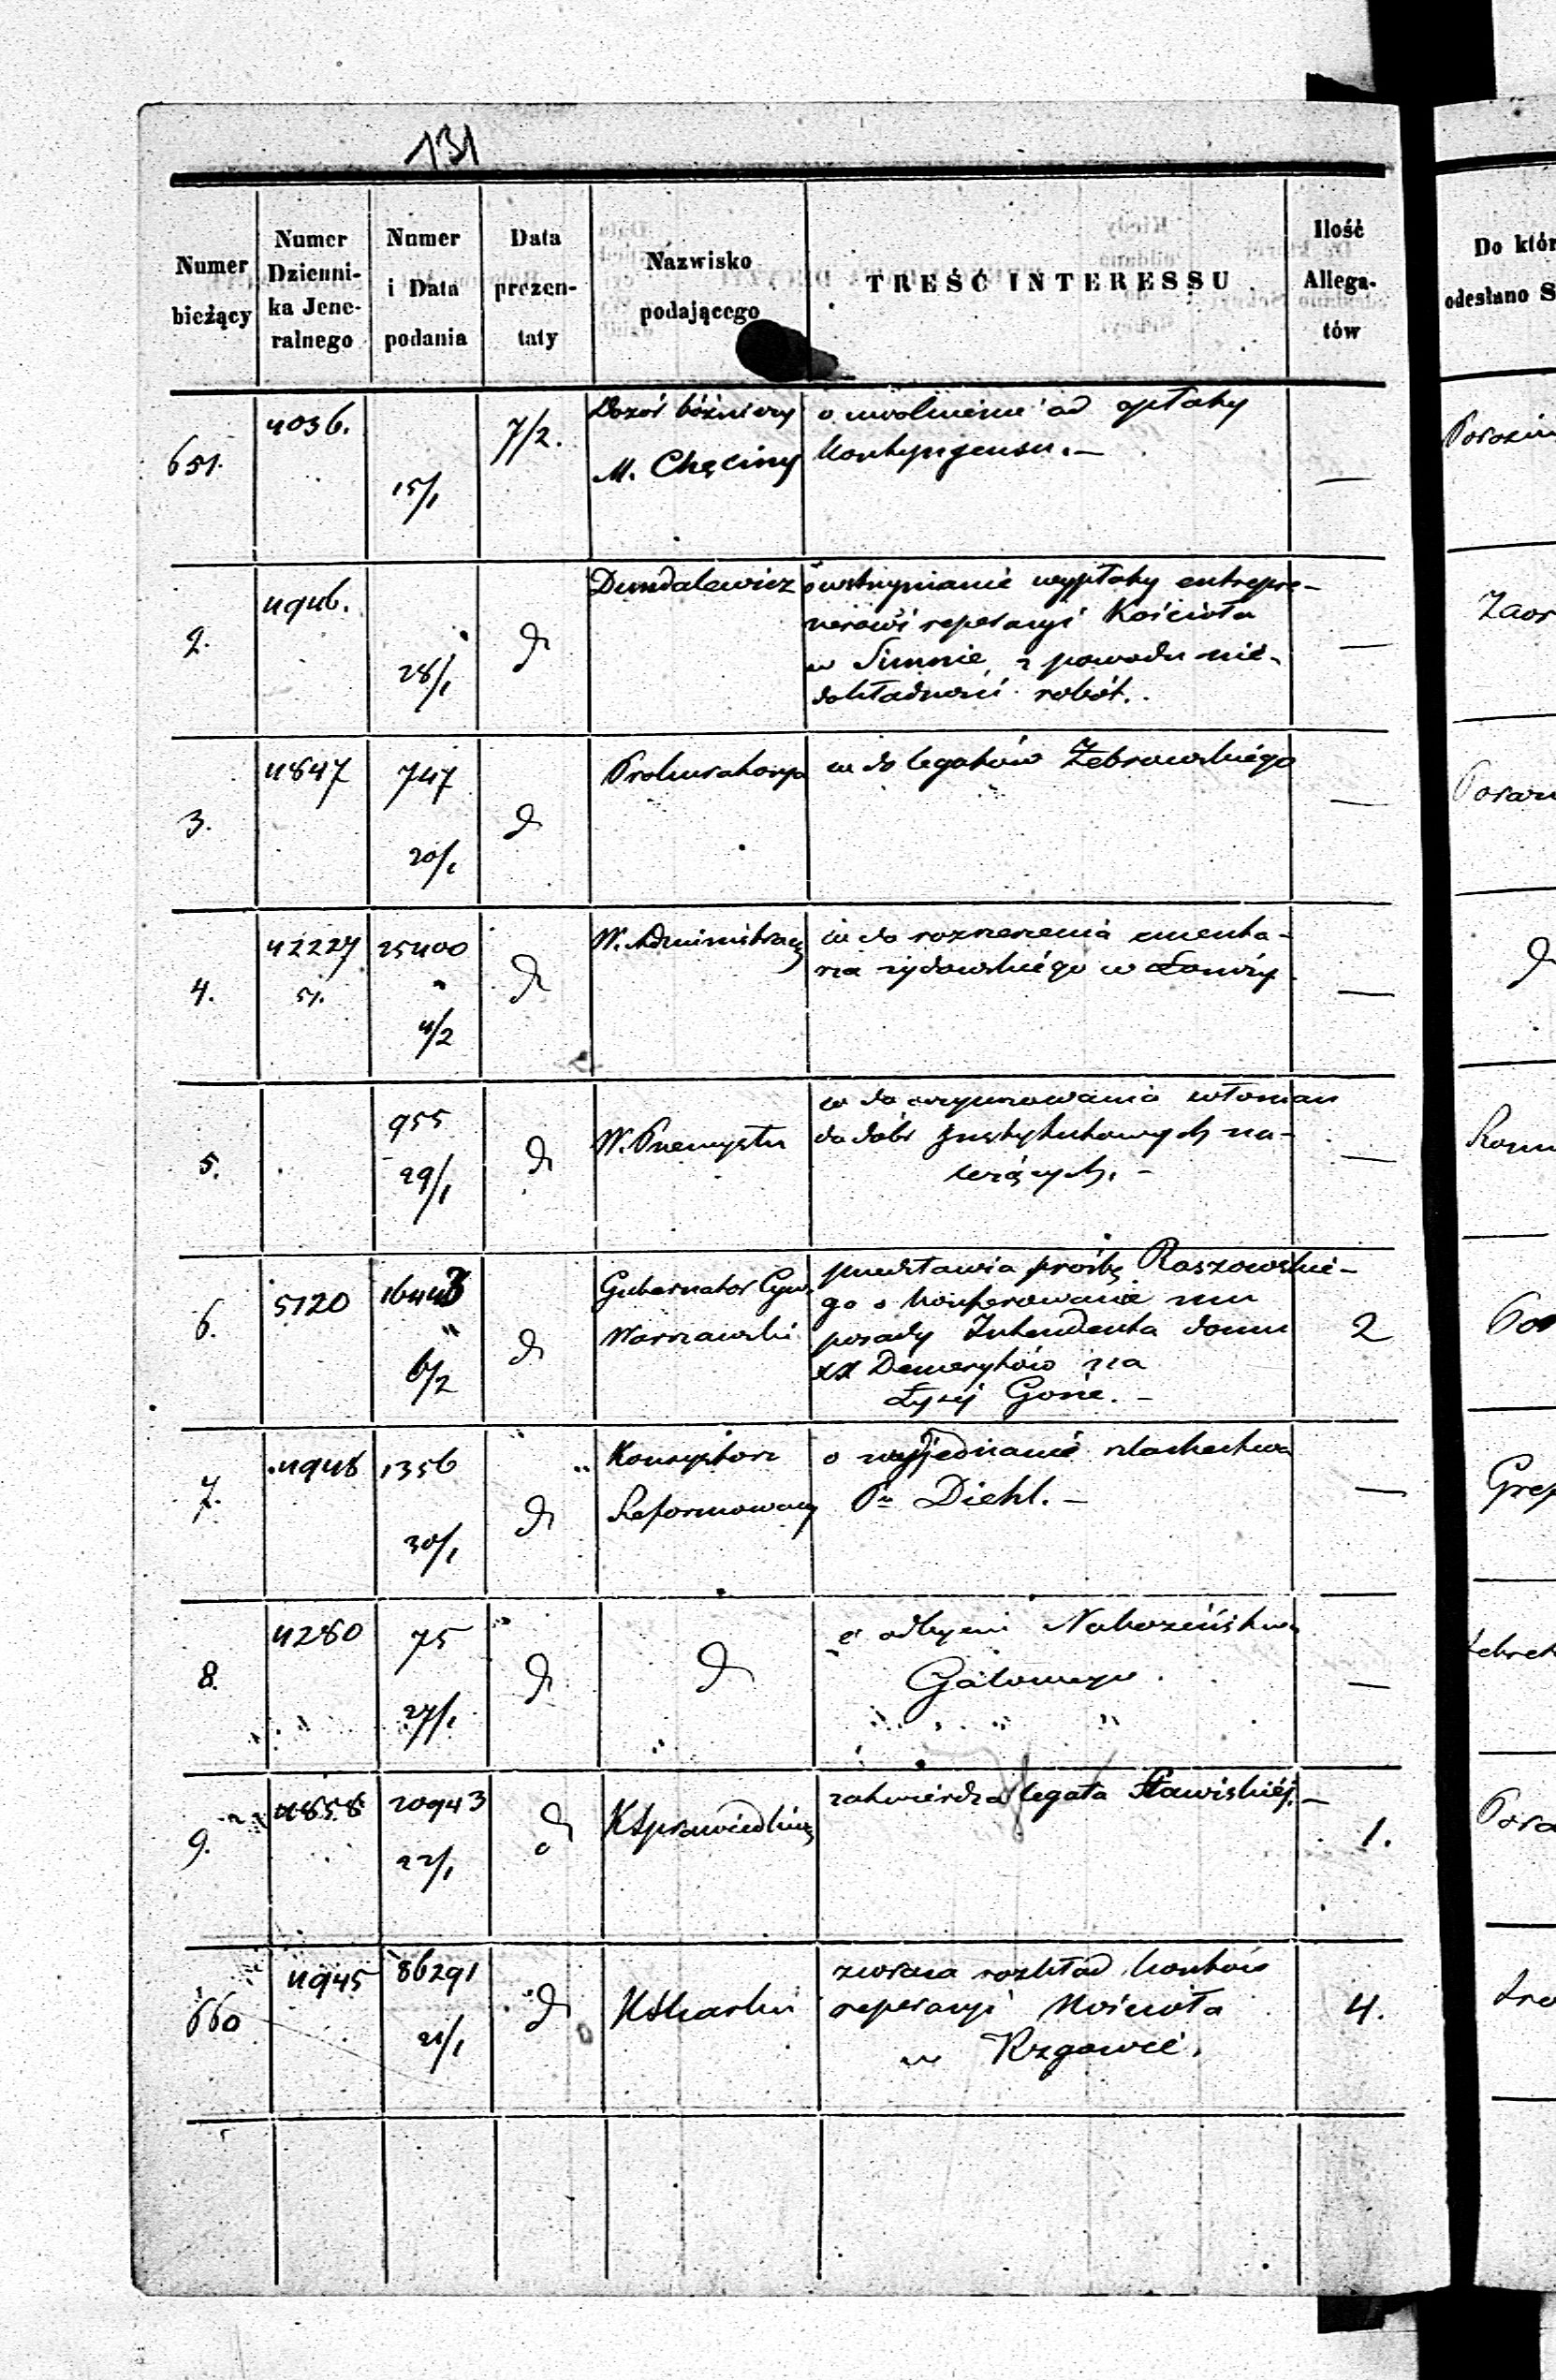 131
Numer bieżący
Numer Dziennika Jeneralnego
Numer i Data podania
Data prezentaty
Nazwisko podającego
TREŚĆ INTERESSU
Ilość Allegatów
Do któr
odesłano S
651. 4036. 15/1 7/2. Dozór bóżniczy o uwolnienie od opłaty
M. Chęciny kontyngensu. —
2. 4946. 28/1 d Dundalewicz o wstrzymanie wypłaty entrepre-
nerowi reperacyi Kościoła
w Simnie, z powodu nie-
dokładności robót. —
3. 4847 747 20/1 d Prokuratorya w do legatów Żebrowskiego —
4. 42227 51. 25400 " 4/2 d W. Administracyj w do rozszerzenia cmenta-
rza żydowskiego w Łomży —
5. 955 29/1 d W. Przemysłu w do oczynszowania włościan
do dóbr Instytutowych na-
leżących. — —
6. 5120 16443 " 6/2 d Gubernator Cyw. przedstawia prośbę Raszowskie-
Warszawski go o konferowanie mu
posady Intendenta domu
XX Demerytów na
Łysej Górze. — 2
7. 4948 1356 30/1 d Konsystorz o wyjednanie szlachectwa
Reformowany Pu Diehl. — —
8. 4280 75 27/1 d d o odbyciu Nabożeństwa
Galowego —
9. 4858 20943 22/1 d KSprawiedliwoś zatwierdza legata Stawiskiéj. — 1.
660 4945 86291 21/1 d KSkarbu zwraca rozkład kosztów
reperacyi Kościoła
w Rzgowie. 4.
d